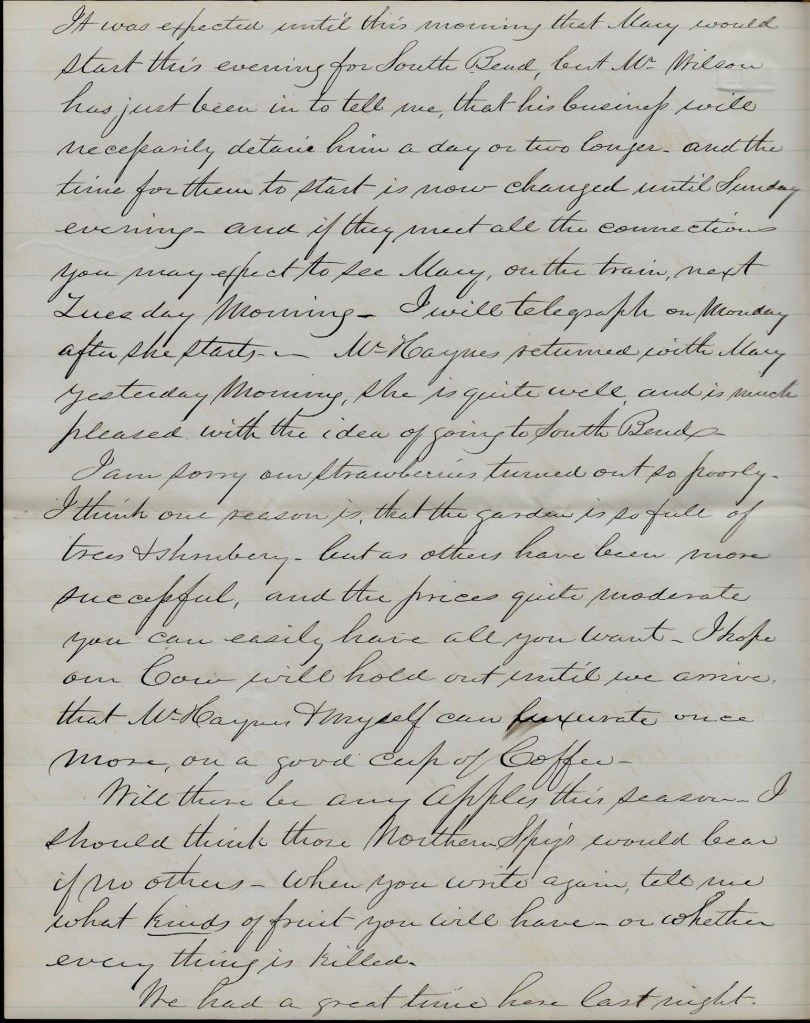 It was expected until this morning that Mary would
start this evening for South Bend, but Mr Wilson
has just been in to tell me, that his business will
necessarily detain him a day or two longer - and the
time for them to start is now changed until Sunday
evening - and if they meet all the connections
you may expect to see Mary, on the train, next
Tuesday Morning - I will telegraph on Monday
after she starts - Mr Haynes returned with Mary
yesterday Morning, she is quite well, and is much
pleased with the idea of going to South Bend -
I am sorry our strawberries turned out so poorly -
I think one reason is, that the garden is so full of
trees & shrubery - but as others have been more
successful, and the prices quite moderate
you can easily have all you want - I hope
our Cow will hold out until we arrive,
that Mr Haynes & myself can luxurate once
more, on a good cup of Coffee -
Will there be any apples this season - I
should think those Northern Spys would bear
if no others - When you write again, tell me
what kinds of fruit you will have - or whether
every thing is killed -
We had a great time here last night.